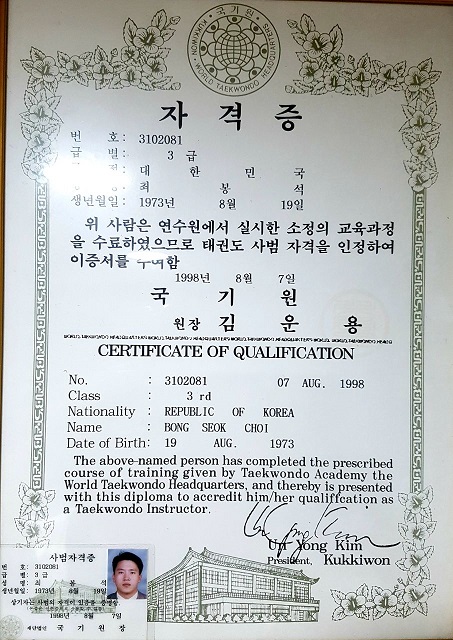 국기원
KUKKIWON · WORLD TAEKWONDO HEADQUARTERS
자 격 증
번 호: 3102081
급 별: 3 급
대 한 민 국
최 봉 석
생년월일: 1973년 8월 19일
위 사람은 연수원에서 실시한 소정의 교육과정
을 수료하였으므로 태권도 사범 자격을 인정하여
이증서를 수여함
1998년 8월 7일
국 기 원
원장 김 운 용
CERTIFICATE OF QUALIFICATION
No. : 3102081 07 AUG. 1998
Class : 3 rd
Nationality : REPUBLIC OF KOREA
Name : BONG SEOK CHOI
Date of Birth: 19 AUG. 1973
The above-named person has completed the prescribed
course of training given by Taekwondo Academy the
World Taekwondo Headquarters, and thereby is presented
with this diploma to accredit him/her qualification as
a Taekwondo Instructor.
Un Yong Kim
President, Kukkiwon
사범자격증
번 호: 3102081
급 별: 3 급
성 명: 최 봉 석
생년월일: 1973년 8월 19일
1998년 8월 7일
재단법인 국 기 원 장